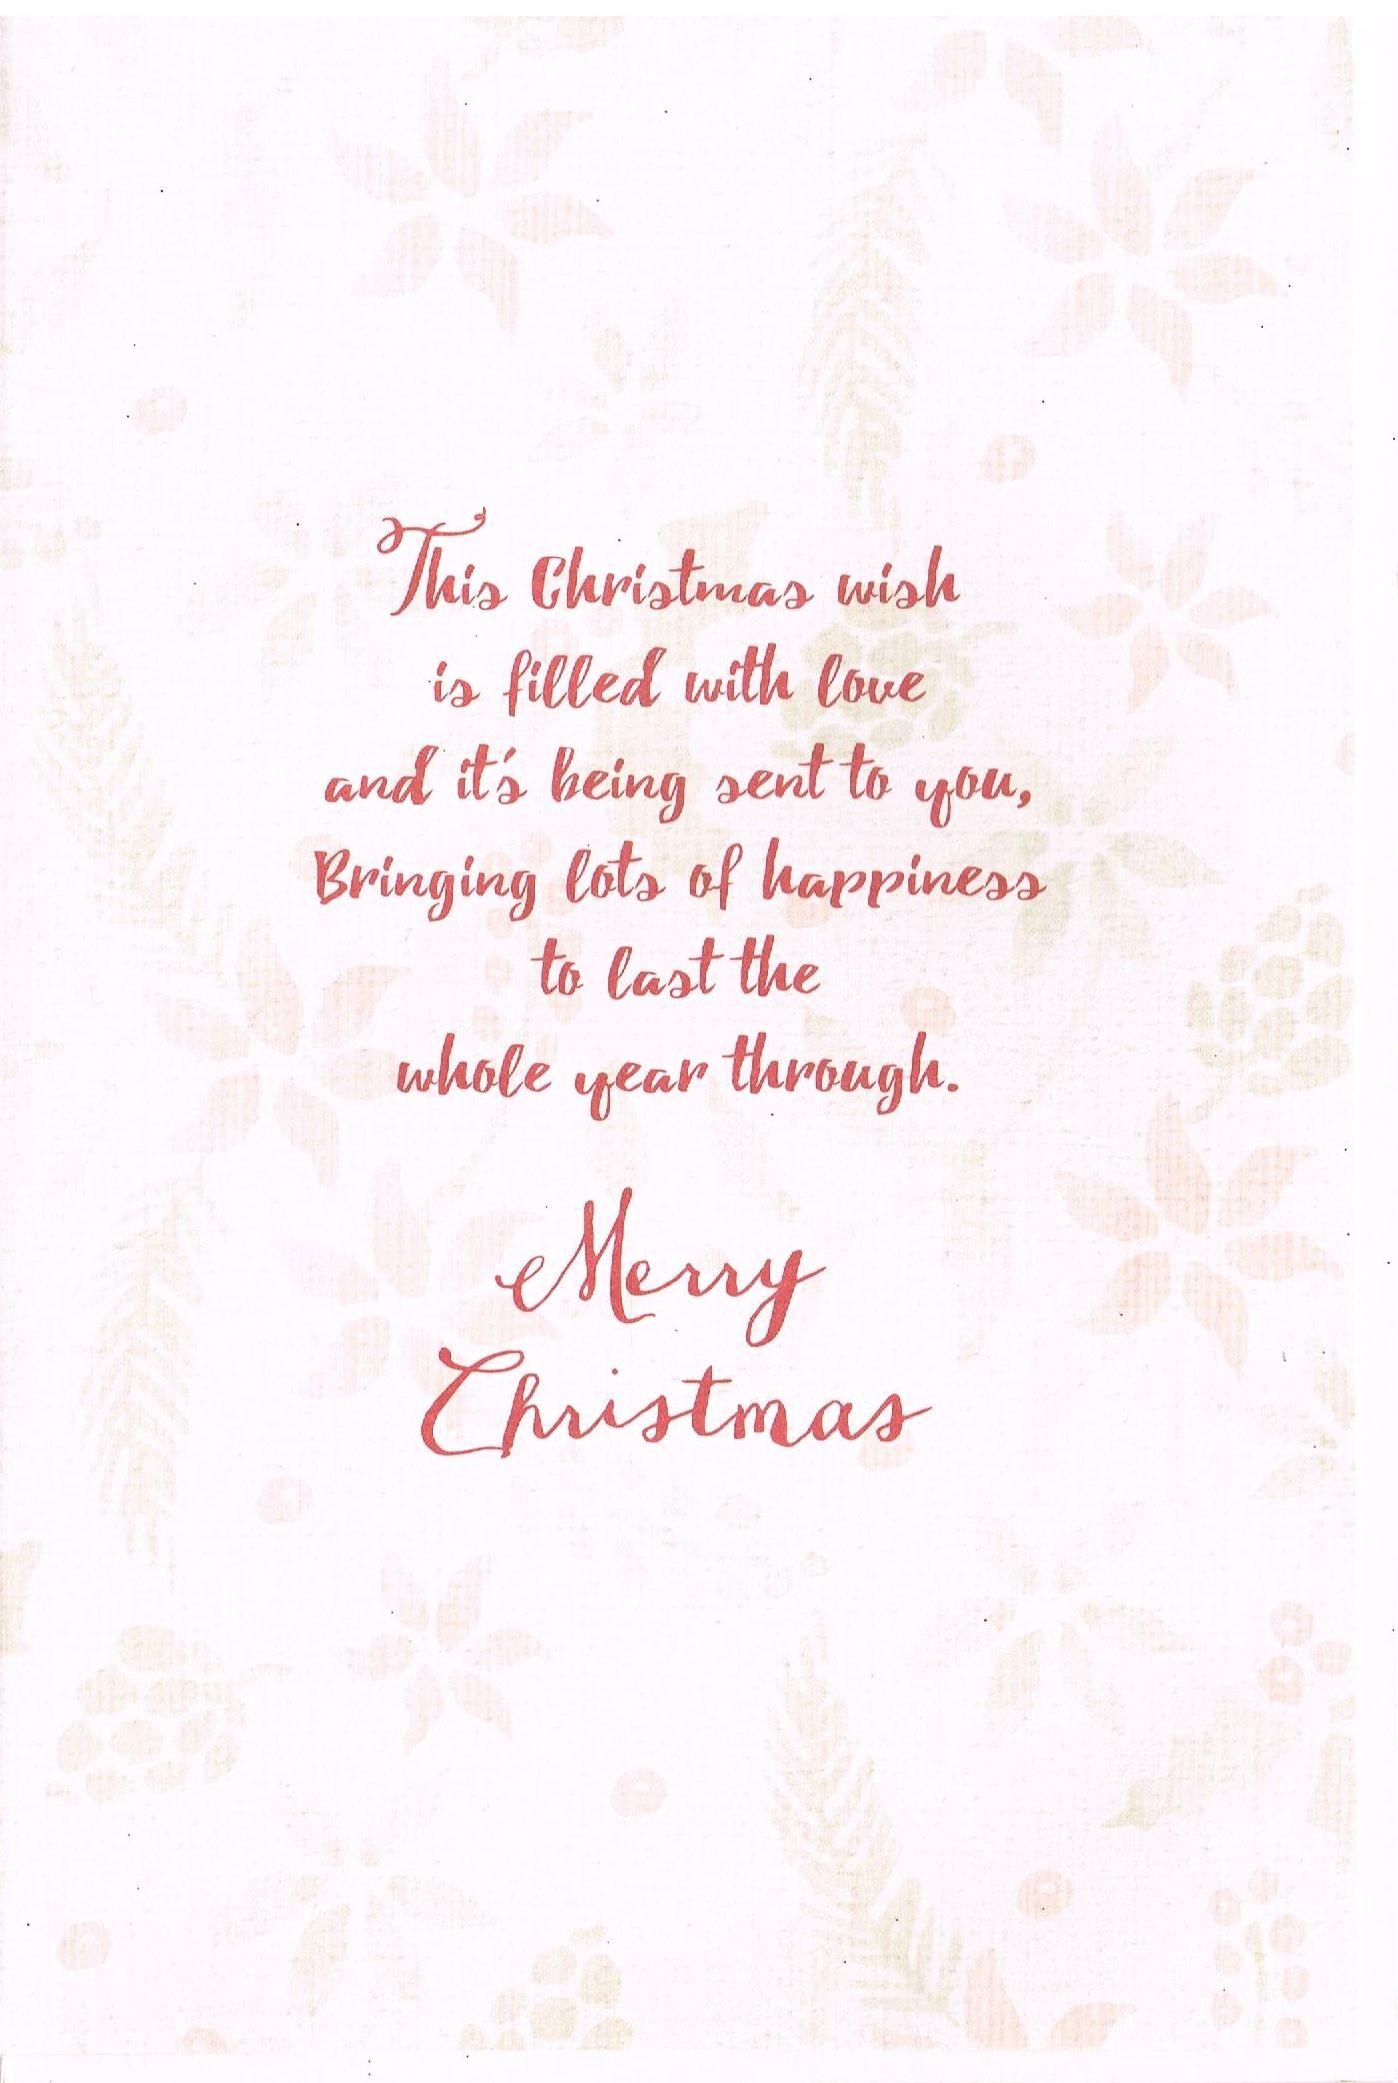 This Christmas wish
is filled with love
and it's being sent to you,
Bringing lots of happiness
to last the
whole year through.
Merry
Christmas